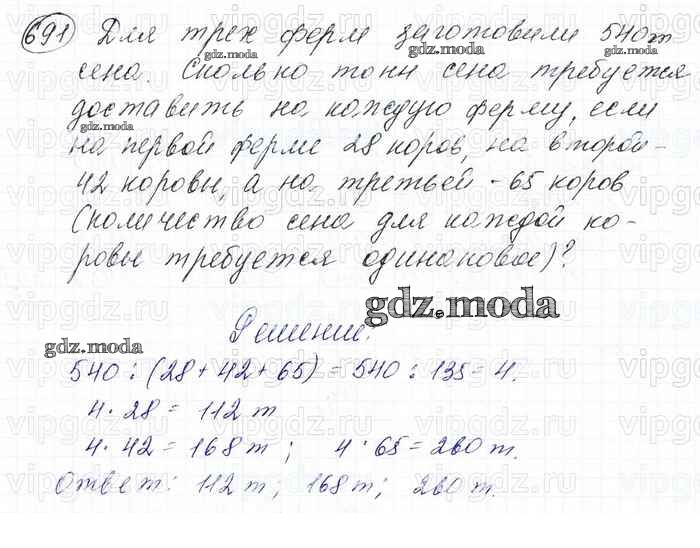 691 Для трех ферм заготовили 540т
сена. Сколько тонн сена требуется
доставить на каждую ферму, если
на первой ферме 28 коров, на второй -
42 коровы, а на третьей - 65 коров
(количество сена для каждой ко-
ровы требуется одинаковое)?
gdz.moda
Решение:
gdz.moda
540 : (28 + 42 + 65) = 540 : 135 = 4.
4 · 28 = 112 т
4 · 42 = 168 т ; 4 · 65 = 260 т.
Ответ: 112 т ; 168 т ; 260 т.